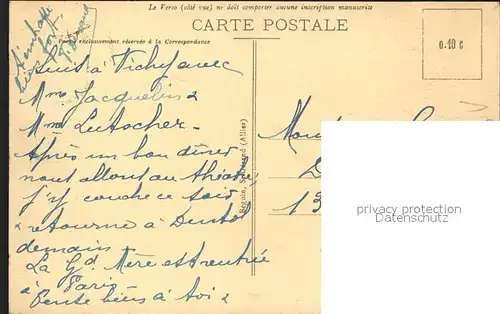 Le Verso (côté vue) ne doit comporter aucune inscription manuscrite
CARTE POSTALE
Partie exclusivement réservée à la Correspondance
0.10 c
Suis à Vichy avec
Mme Jacquelin &
Mme
Après un bon dîner
nous allons au théâtre,
j'y couche ce soir
& retourne à
demain -
La Gd Mère est rentrée
à Paris -
Pense bien à toi &
(Allier)
13
privacy protection
Datenschutz